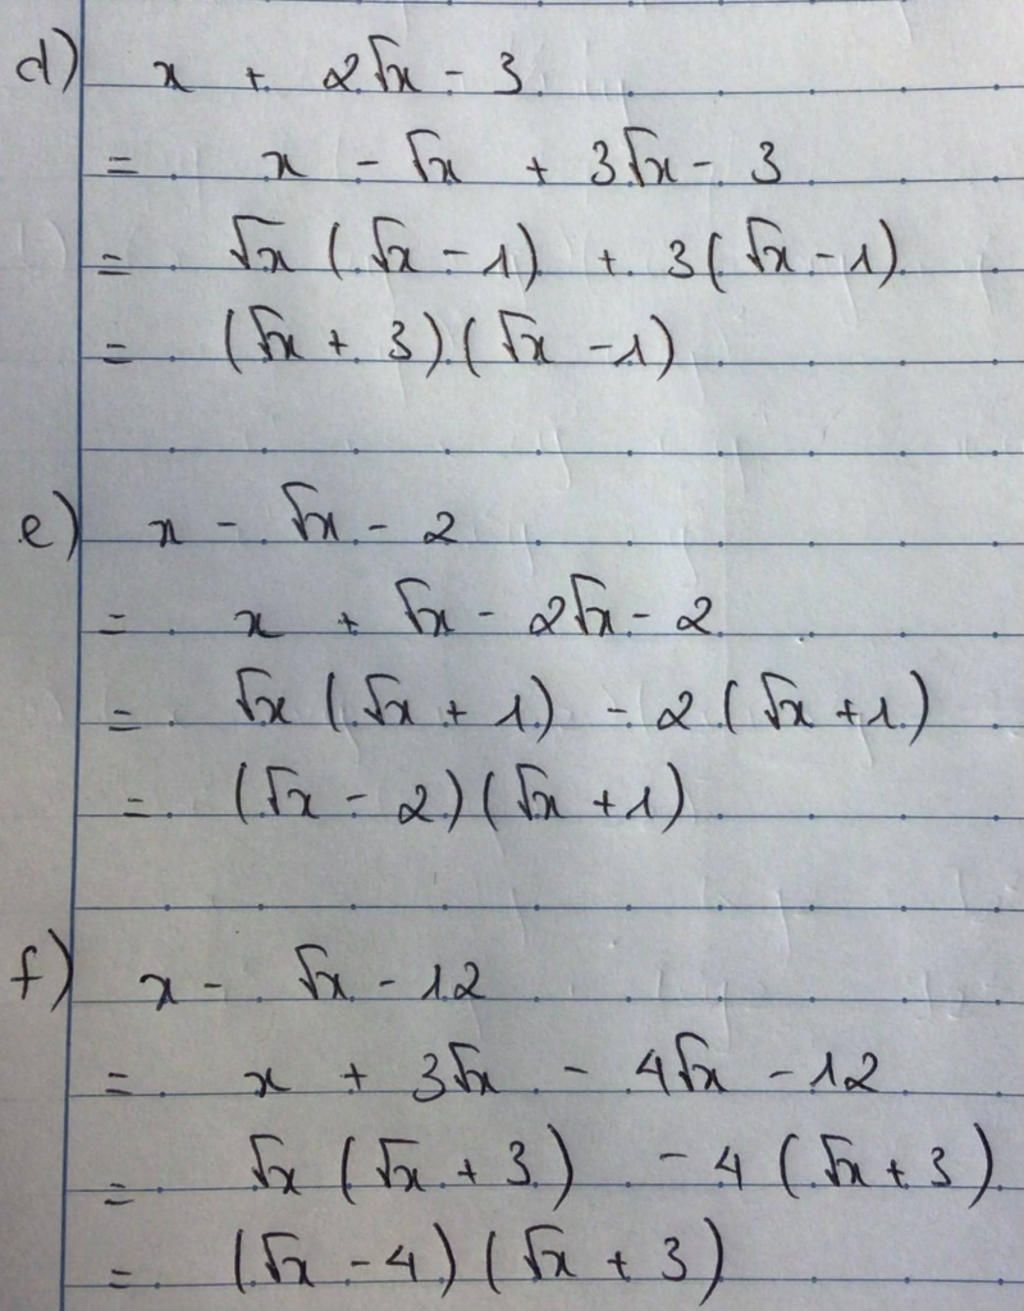 d) x + 2√x - 3
= x - √x + 3√x - 3
= √x (√x - 1) + 3(√x - 1)
= (√x + 3)(√x - 1)
e) x - √x - 2
= x + √x - 2√x - 2
= √x (√x + 1) - 2 (√x + 1)
= (√x - 2)(√x + 1)
f) x - √x - 12
= x + 3√x - 4√x - 12
= √x (√x + 3) - 4 (√x + 3)
= (√x - 4)(√x + 3)